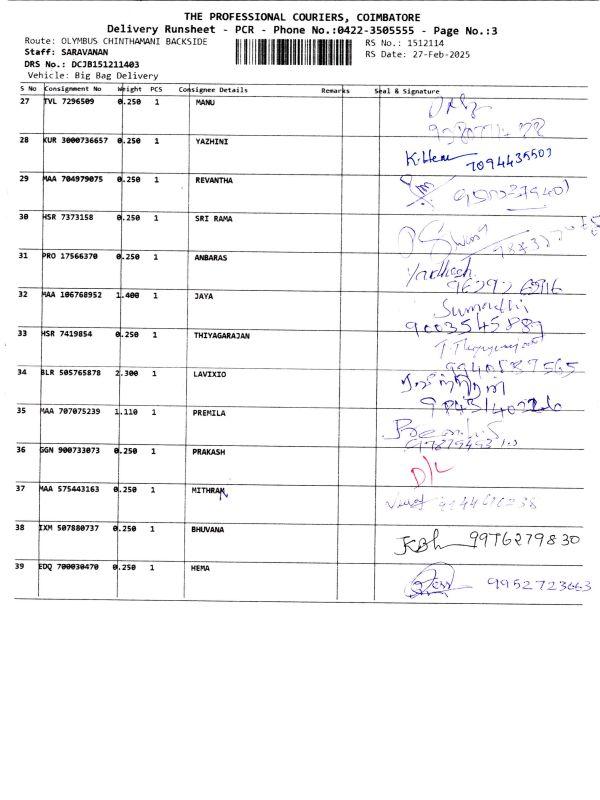 THE PROFESSIONAL COURIERS, COIMBATORE
Delivery Runsheet - PCR - Phone No.:0422-3505555 - Page No.:3
Route: OLYMBUS CHINTHAMANI BACKSIDE RS No.: 1512114
Staff: SARAVANAN RS Date: 27-Feb-2025
DRS No.: DCJB151211403
Vehicle: Big Bag Delivery
S No Consignment No Weight PCS Consignee Details Remarks Seal & Signature
27 TVL 7296509 0.250 1 MANU
28 KUR 3000736657 0.250 1 YAZHINI K.Hema 7094435503
29 MAA 704979075 0.250 1 REVANTHA
30 HSR 7373158 0.250 1 SRI RAMA
31 PRO 17566370 0.250 1 ANBARAS
32 MAA 106768952 1.400 1 JAYA Sumadhi
9003545889
33 HSR 7419854 0.250 1 THIYAGARAJAN
9940537565
34 BLR 505765878 2.300 1 LAVIXIO
35 MAA 707075239 1.110 1 PREMILA
36 GGN 900733073 0.250 1 PRAKASH D/L
37 MAA 575443163 0.250 1 MITHRAN
38 IXM 507880737 0.250 1 BHUVANA 9976279830
39 EDQ 700030470 0.250 1 HEMA 9952723663